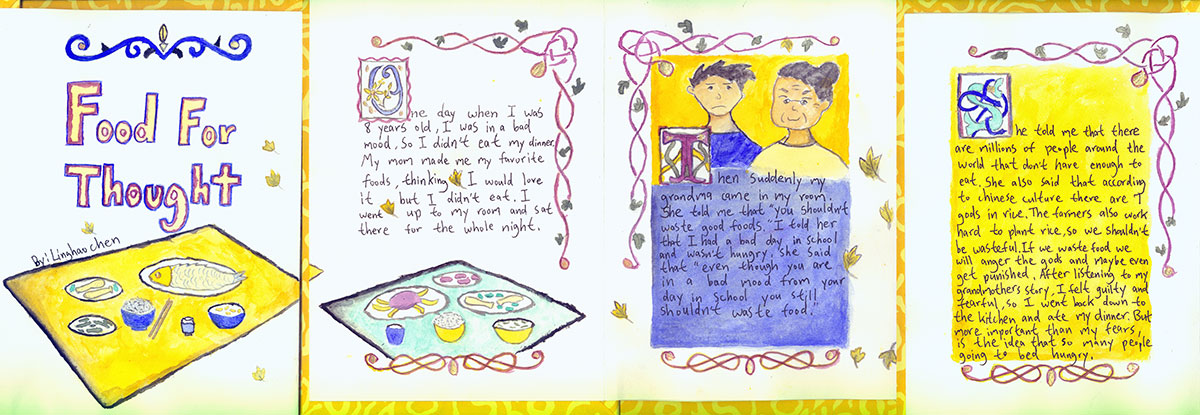 Food For
Thought
By: Linghao chen
One day when I was
8 years old, I was in a bad
mood, so I didn't eat my dinner.
My mom made me my favorite
foods, thinking I would love
it but I didn't eat. I
went up to my room and sat
there for the whole night.
Then suddenly my
grandma came in my room.
She told me that "you shouldn't
waste good foods." I told her
that I had a bad day in school
and wasn't hungry. She said
that "even though you are
in a bad mood from your
day in school you still
shouldn't waste food."
She told me that there
are millions of people around the
world that don't have enough to
eat. She also said that according
to chinese culture there are 7
gods in rice. The farmers also work
hard to plant rice, so we shouldn't
be wasteful. If we waste food we
will anger the gods and maybe even
get punished. After listening to my
grandmothers story, I felt guilty and
fearful, so I went back down to
the kitchen and ate my dinner. But
more important than my fears,
is the idea that so many people
going to bed hungry.